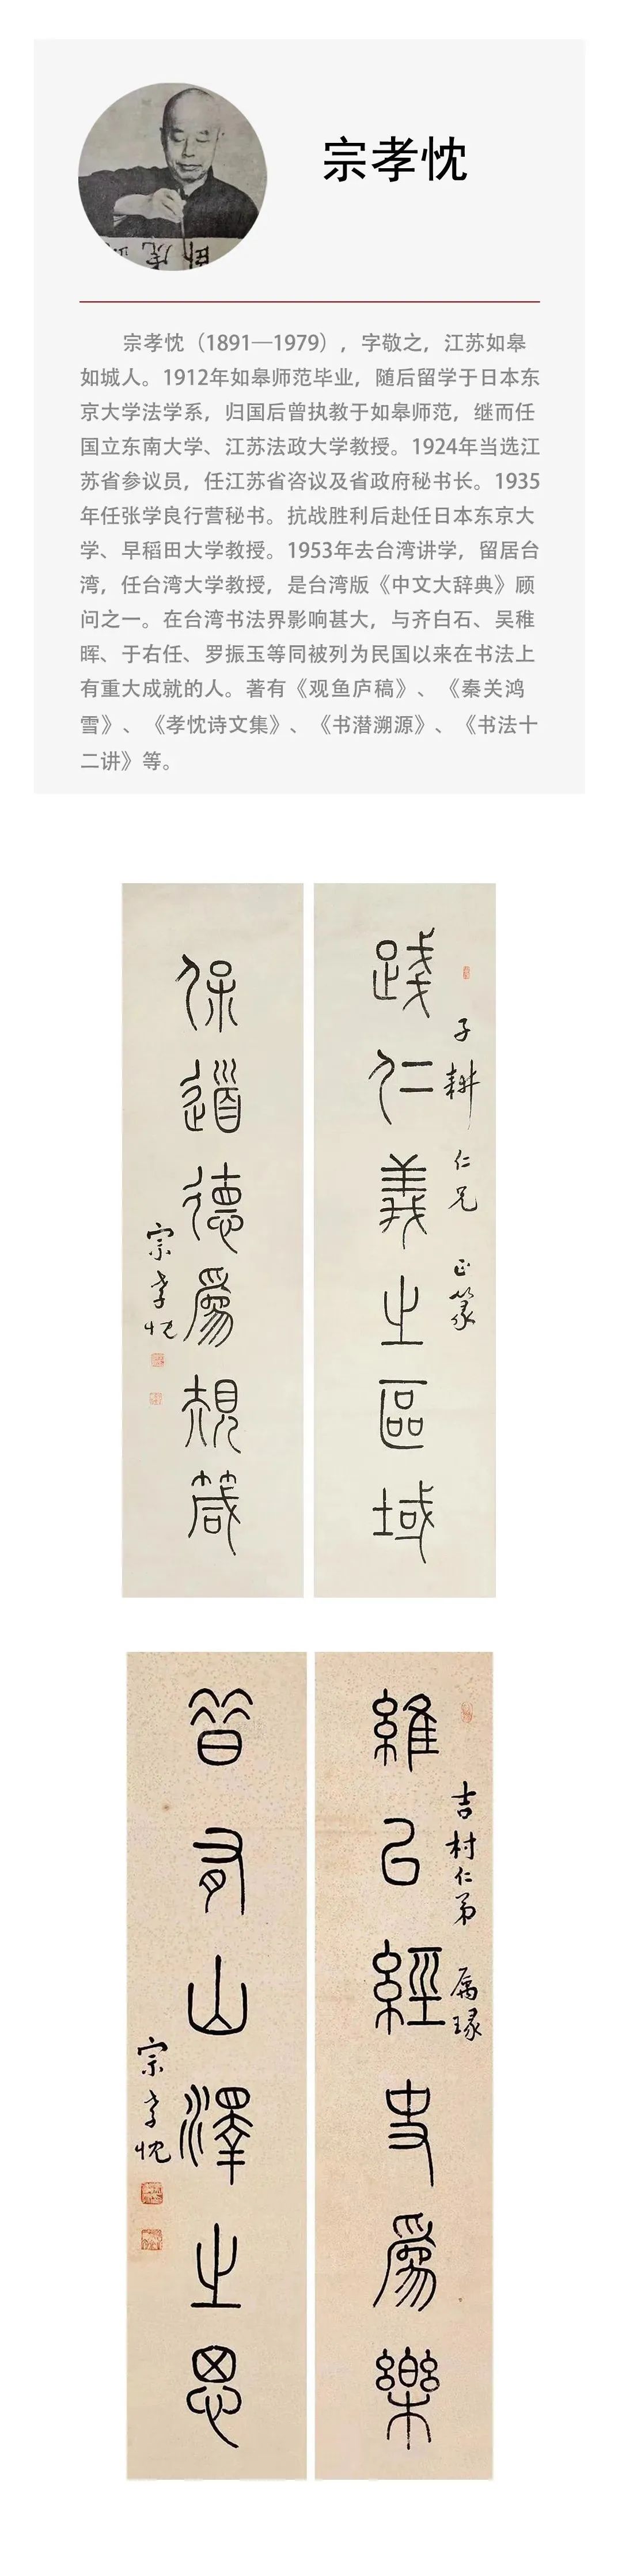 宗孝忱
宗孝忱（1891—1979），字敬之，江苏如皋
如城人。1912年如皋师范毕业，随后留学于日本东
京大学法学系，归国后曾执教于如皋师范，继而任
国立东南大学、江苏法政大学教授。1924年当选江
苏省参议员，任江苏省咨议及省政府秘书长。1935
年任张学良行营秘书。抗战胜利后赴任日本东京大
学、早稻田大学教授。1953年去台湾讲学，留居台
湾，任台湾大学教授，是台湾版《中文大辞典》顾
问之一。在台湾书法界影响甚大，与齐白石、吴稚
晖、于右任、罗振玉等同被列为民国以来在书法上
有重大成就的人。著有《观鱼庐稿》、《秦关鸿
雪》、《孝忱诗文集》、《书潜溯源》、《书法十
二讲》等。
子耕仁兄 正篆
踐仁義之區域
保道德為規箴
宗孝忱
吉村仁弟 属瑑
維以經史為樂
晉有山澤之思
宗孝忱